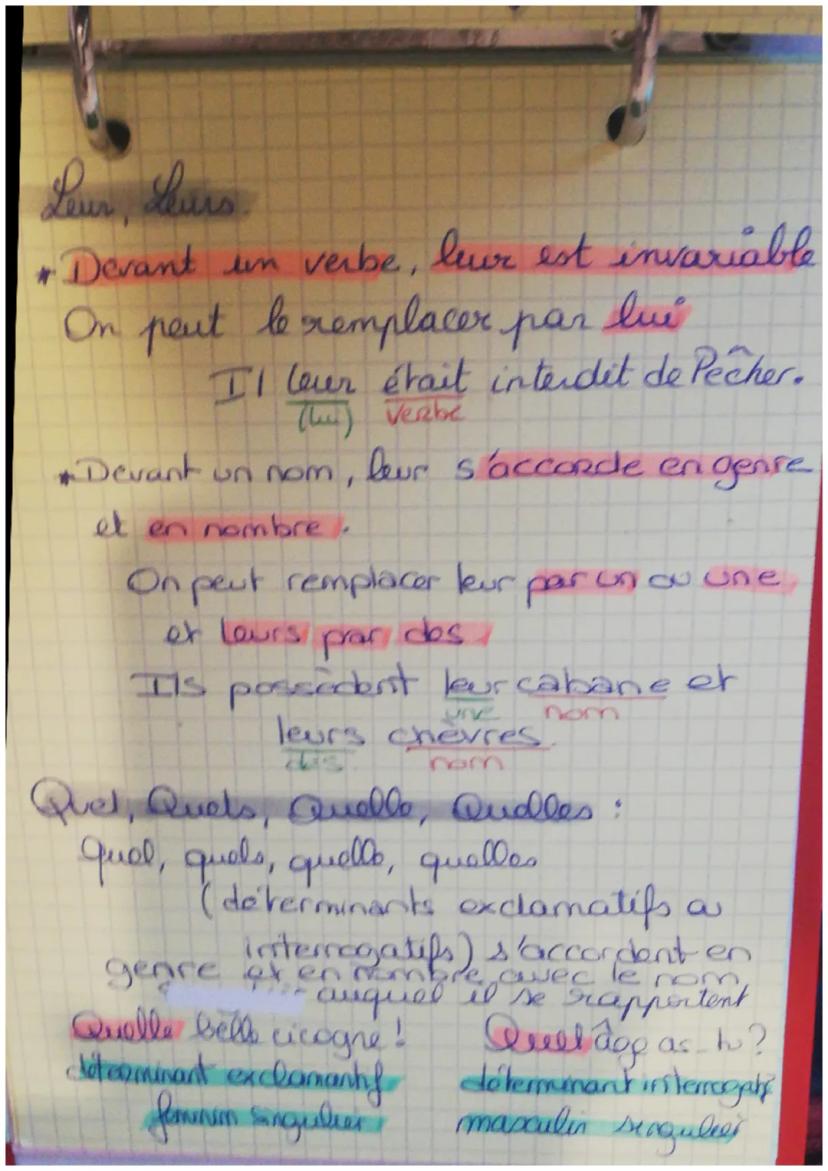 Leur, Leurs.
* Devant un verbe, leur est invariable
On peut le remplacer par lui
Il leur était interdit de Pêcher.
(lui) verbe
* Devant un nom, leur s'accorde en genre
et en nombre.
On peut remplacer leur par un ou une
et leurs par des
Ils possèdent leur cabane et
une nom
leurs chèvres.
des nom
Quel, Quels, Quelle, Quelles :
quel, quels, quelle, quelles
(déterminants exclamatifs ou
interrogatifs) s'accordent en
genre et en nombre avec le nom
auquel il se rapportent
Quelle belle cicogne ! Quel âge as-tu ?
déterminant exclamantif déterminant interrogatif
féminin singulier masculin singulier